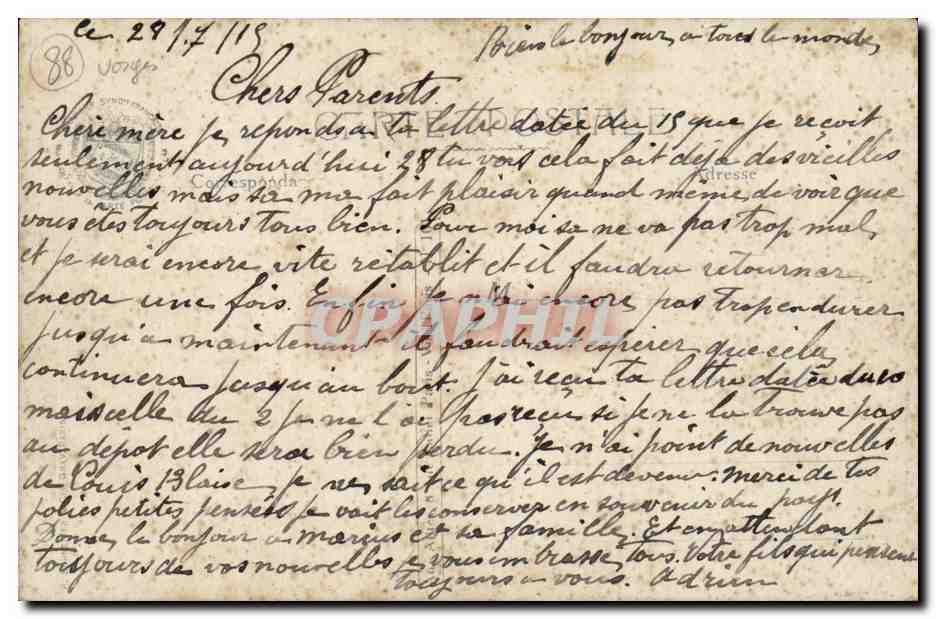 le 28/7/15
Biens le bonjour a tous le monde
88
Vosges
Chers Parents
CARTE POSTALE
Chéri mère je reponds a ta lettre datée du 15 que je reçoit
seulement aujourd'hui 28 tu vois cela fait déja des vieilles
Correspondance
Adresse
nouvelles mais sa ma fait plaisir quand même de voir que
vous etes toujours tous bien. Pour moi sa ne va pas trop mal
et je serai encore vite rétablit et il faudra retourner
encore une fois. Enfin je n'ai encore pas trop endurer
CPAPHIL
jusqu'a maintenant il faudrait espérer que cela
continuera jusqu'au bout. J'ai reçu ta lettre datée du 10
mais celle du 2 je ne l'ai pas reçu si je ne la trouve pas
au dépot elle sera bien perdu. Je n'ai point de nouvelles
de Louis Blaise je ne sait ce qu'il est devenu. Merci de tes
jolies petites pensées je vait les conserver en souvenir du pays.
Donne le bonjour a Marius et sa famille. Et en attendant
toujours de vos nouvelles je vous embrasse tous. Votre fils qui pense
toujours a vous. Adrien